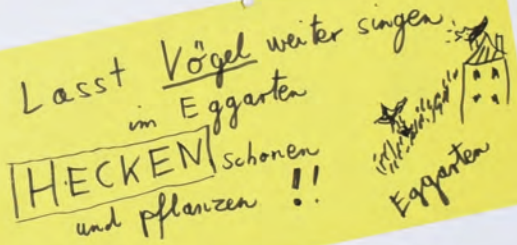 Lasst Vögel weiter singen
im Eggarten
HECKEN schonen
und pflanzen !!
Eggarten